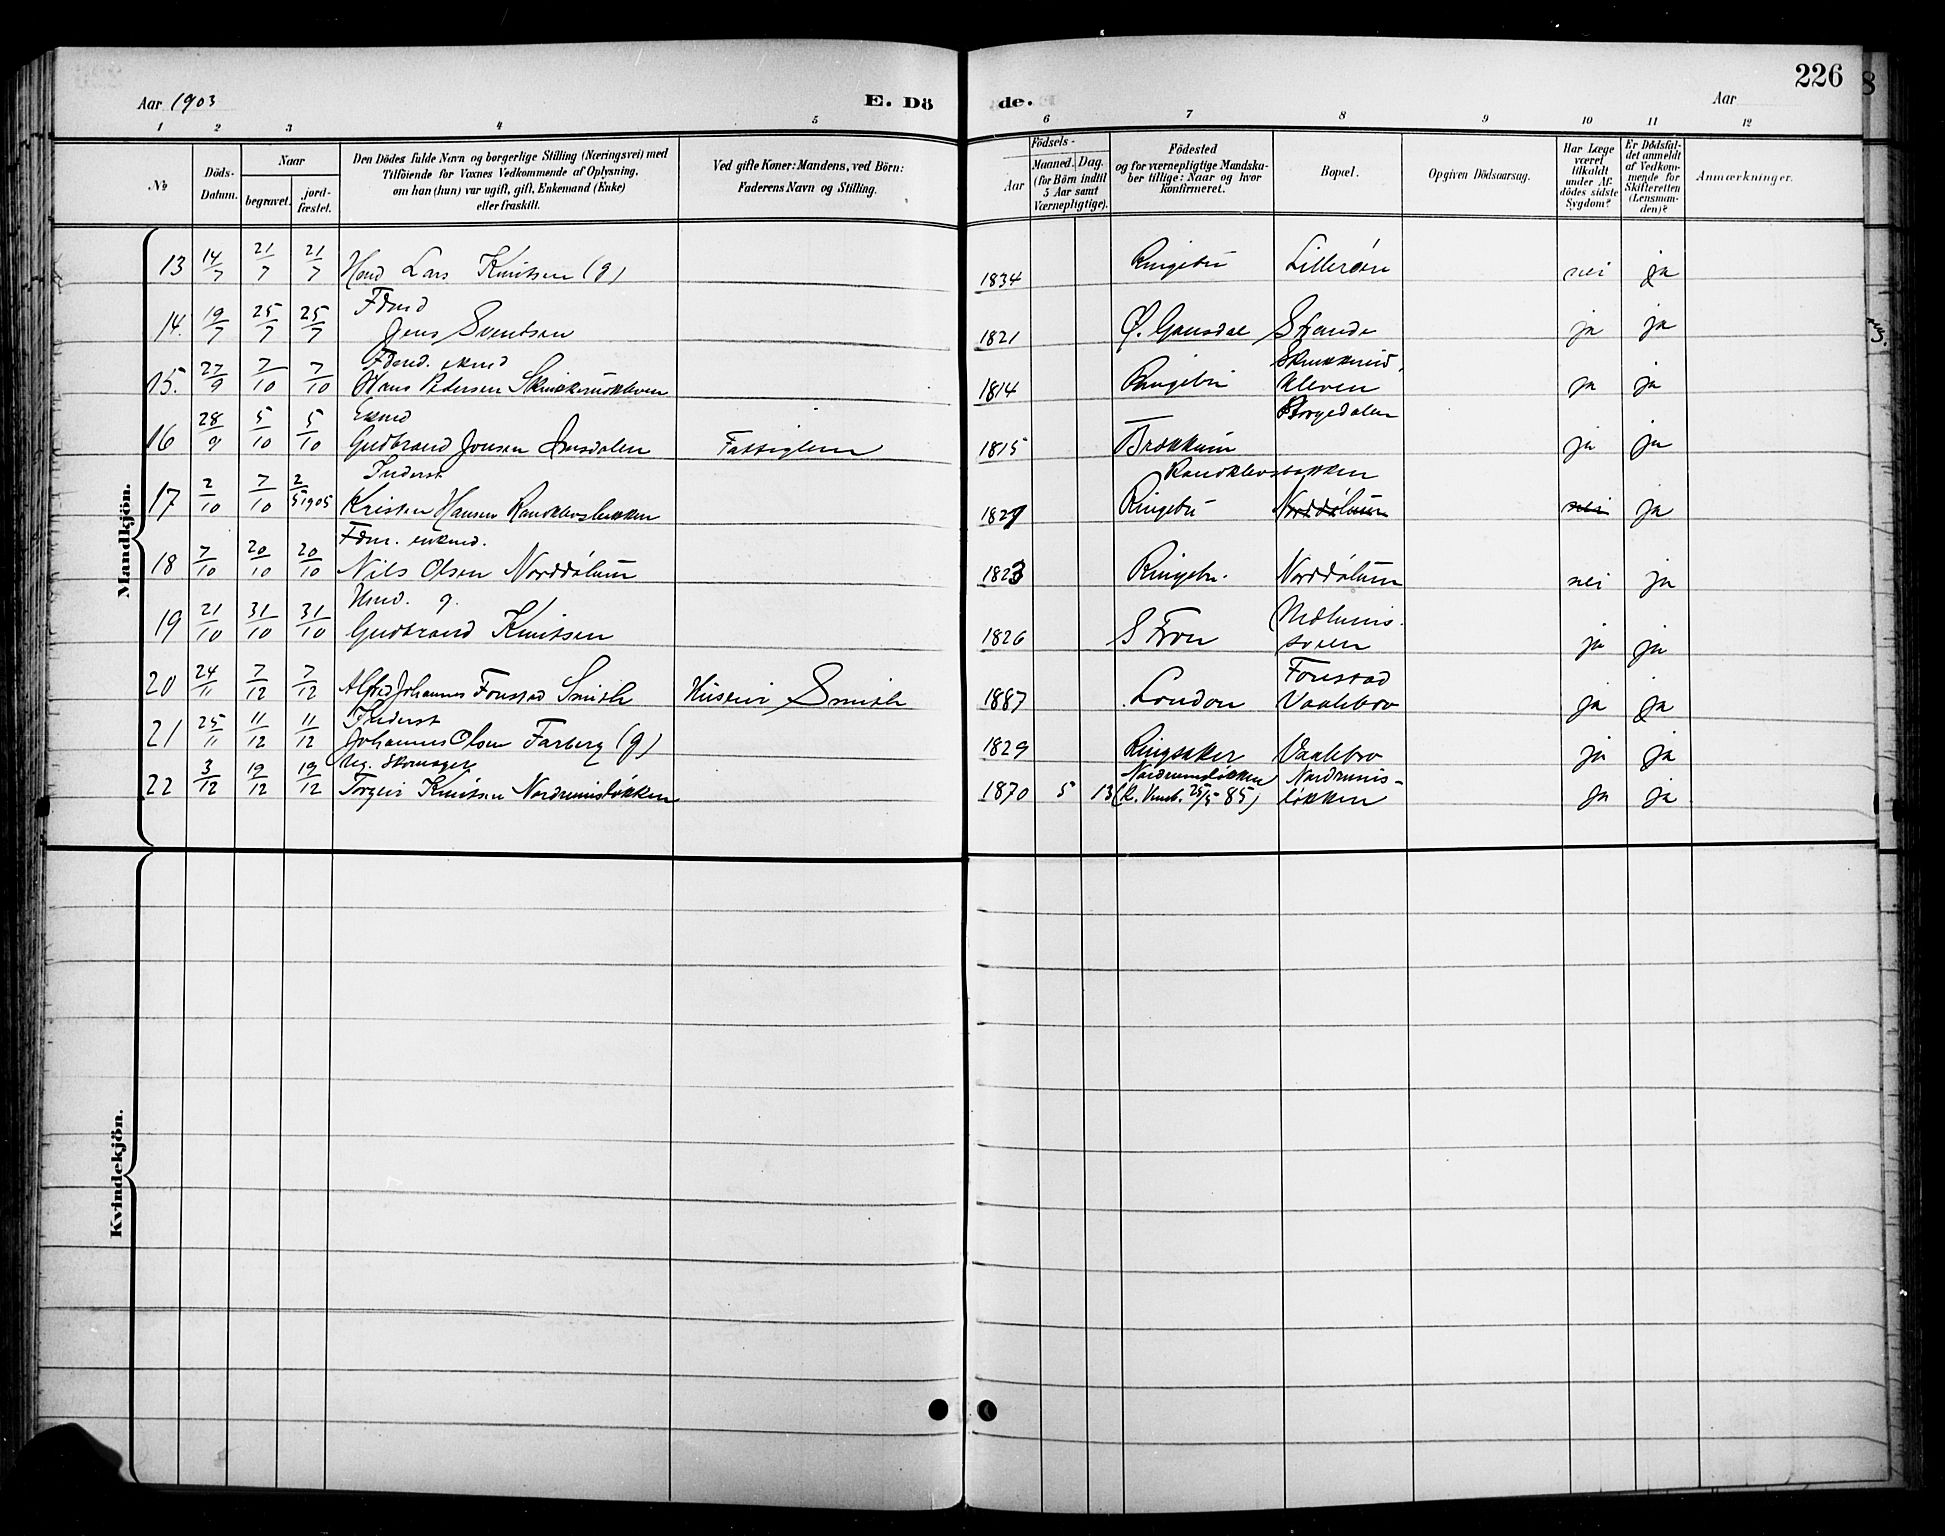 226
Aar 1903
E. Dö
de.
Aar
1 2 3 4 5 6 7 8 9 10 11 12
№
Döds-
Datum.
Naar
begravet.
jord-
fæstet.
Den Dödes fulde Navn og borgerlige Stilling (Næringsvei) med
Tilföiende for Voxnes Vedkommende af Oplysning,
om han (hun) var ugift, gift, Enkemand (Enke)
eller fraskilt.
Ved gifte Koner: Mandens, ved Börn:
Faderens Navn og Stilling.
Födsels-
Aar
Maaned. Dag.
(for Börn indtil
5 Aar samt
Værnepligtige).
Födested
og for værnepligtige Mandska-
ber tillige: Naar og hvor
konfirmeret.
Bopæl.
Opgiven Dödsaarsag.
Har Læge
været
tilkaldt
under Af-
dödes sidste
Sygdom?
Er Dödsfal-
det anmeldt
af Vedkom-
mende for
Skifteretten
(Lensman-
den)?
Anmærkninger.
Mandkjön.
13 14/7 21/7 21/7 Lars Knutsen (g) 1834 Ringebu Lillerøen nei ja
Fdmd
14. 19/7 25/7 25/7 Jens Svendsen 1821 Ø. Gausdal Strande ja ja
Fdmd. ekmd
15. 27/9 7/10 7/10 Hans Pedersen 1814 Ringebu kleven ja ja
Ekmd
16 28/9 5/10 5/10 Gudbrand Jonsen Fattiglem 1815 Brækkum ja ja
Inderst
17 2/10 7/10 2/5 1905 Kristen Hansen Randklevsbakken 1827 Ringebu Randklevsbakken Norddølum nei ja
Fdm. enkmd.
18 7/10 20/10 20/10 Nils Olsen Norddølum 1823 Ringebu. Norddølum nei ja
Hmd. g.
19 21/10 31/10 31/10 Gudbrand Knutsen 1826 S Fron ja ja
20 24/11 7/12 7/12 Alfred Johannes Fonstad Smith Smith 1887 London Fonstad Vaalebro ja ja
Inderst
21 25/11 11/12 11/12 Johannes Olsen Farberg (g) 1829 Ringsaker Vaalebro ja ja
Ug. Skomager
22 3/12 19/12 19/12 Torgeir Knutsen Nordrumsløkken 1870 5 13 Nordrumsløkken (K. Venb. 25/5 85) Nordrums-
løkken ja ja
Kvindekjön.